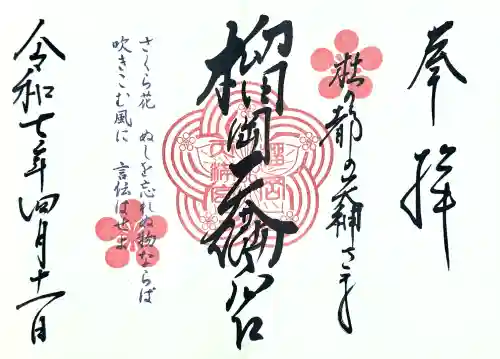 奉拝
杜の都の天神さま
榴岡天満宮
さくら花 ぬしを忘れぬ物ならば
吹きこむ風に 言伝はせよ
令和七年四月十一日